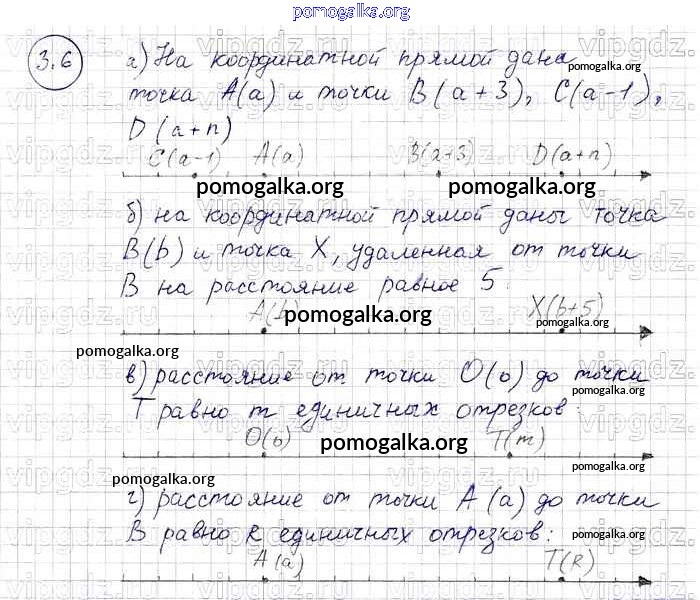 pomogalka.org
3.6
а) На координатной прямой дана
pomogalka.org
точка A(a) и точки B(a+3), C(a-1),
D(a+n)
C(a-1) A(a) B(a+3) D(a+n)
pomogalka.org pomogalka.org
б) на координатной прямой даны точка
B(b) и точка X, удаленная от точки
B на расстояние равное 5
pomogalka.org X(b+5)
pomogalka.org
pomogalka.org
в) расстояние от точки O(o) до точки
pomogalka.org
T равно m единичных отрезков:
O(o) pomogalka.org T(m)
pomogalka.org
pomogalka.org
г) расстояние от точки A(a) до точки
B равно R единичных отрезков:
pomogalka.org
A(a) T(R)